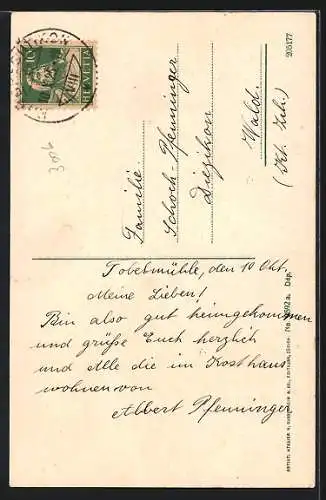 Familie
Schoch-Pfenninger
Diezikon
Wald.
(Kt. Zch.)
205177
HELVETIA
10
306
Tobelmühle, den 10 Okt.
Meine Lieben!
Bin also gut heimgekommen
und grüße Euch herzlich
und Alle die im Kosthaus
wohnen von
Albert Pfenninger
Dép.